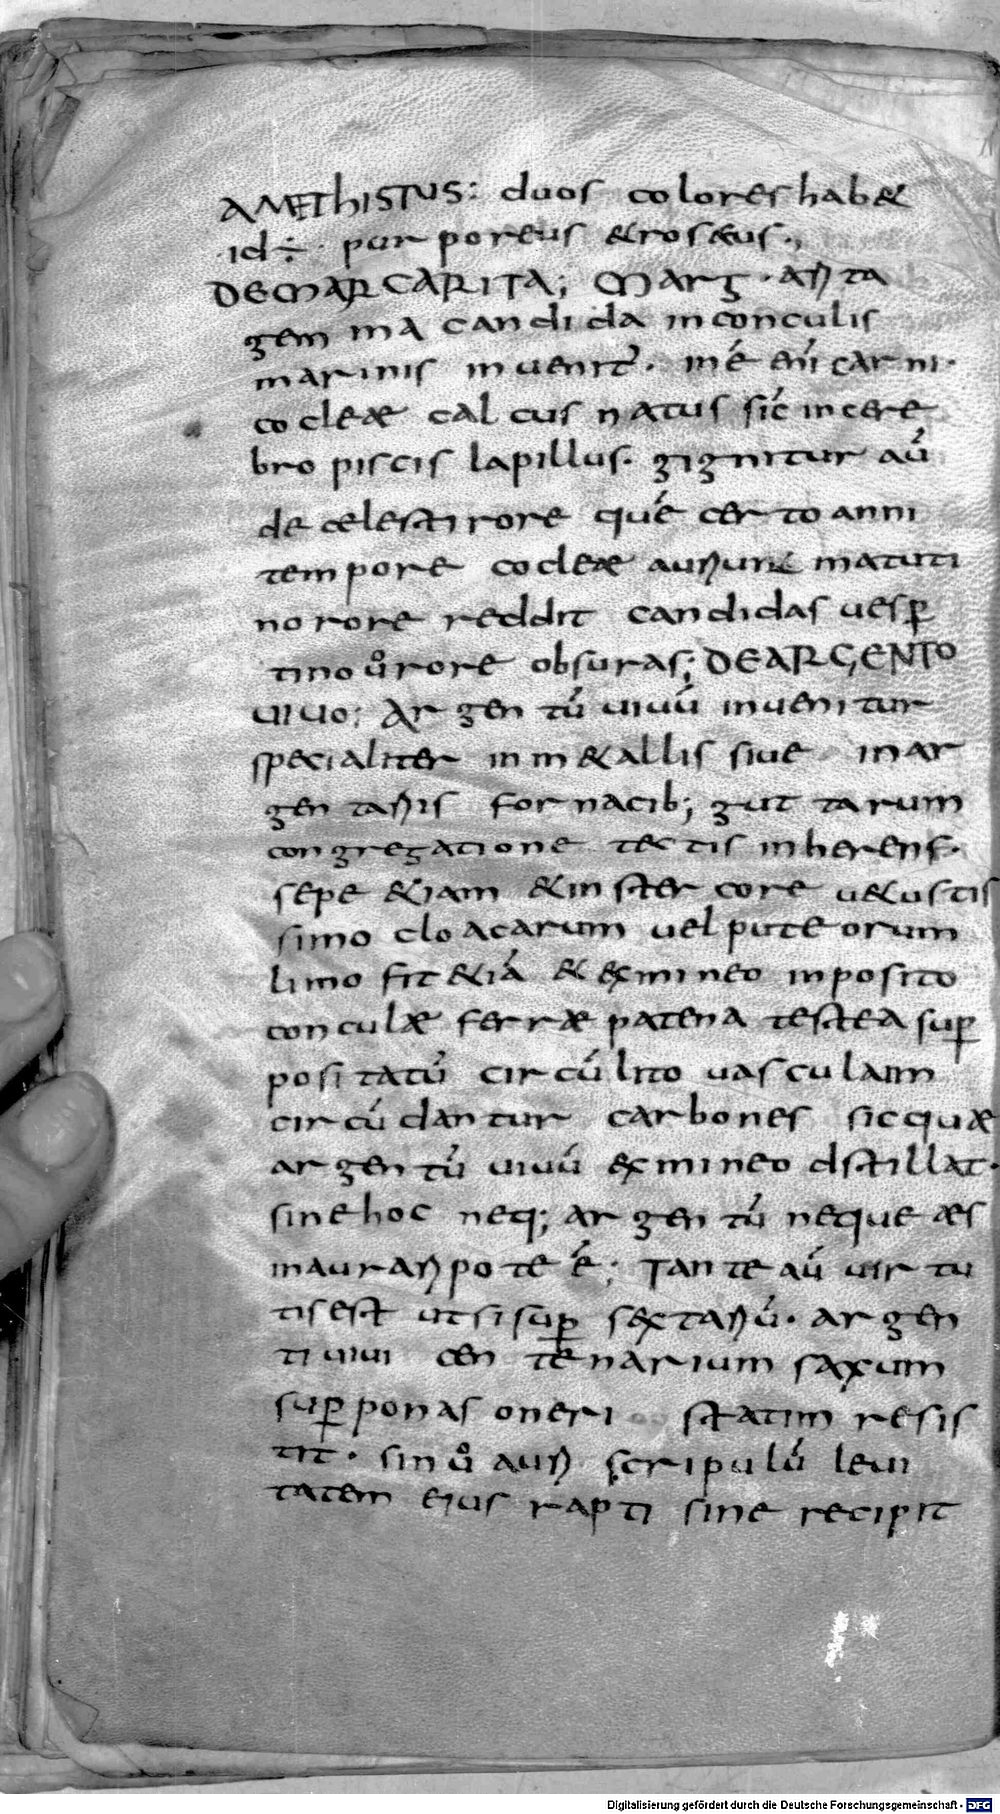 AMEThISTUS: duos colores hab&
·id÷· purporeus &roseus·,
DEMARGARITA; Marg·arita
gemma candida inconculis
marinis inuenit̄· iné eni̅ carni·
cocleae calcus natus sic̄ incere
bro piscis lapillus· gignitur aū
de celesti rore quē certo anni
tempore cocleae auriunt matuti
no rore reddit candidas uesꝑ
tino ū rore obsuras; DEARGENTO
UIUO; Argentū uiuū inuenitur
specialiter inm&allis siue inar
gentariis fornacib; guttarum
congregatione tectis inherens·
sepe &iam &instercore u&ustis
simo cloacarum uel puteorum
limo fit &iā & exmineo inposito
conculae ferrae patena testea suꝑ
positatū circūlito uasculam
circūdantur carbones sicquae
argentū uiuū exmineo dstillat·
sinehoc neq; argentū neque aes
inaurari pote ē; Tante aū uirtu
tisest utsisuꝑ sextariū· argen
tiuiui centenarium saxum
suꝑponas oneri statim resis
tit· sin ū auri scripulū leui
tatem eius rapti sine recipit
Digitalisierung gefördert durch die Deutsche Forschungsgemeinschaft - DFG